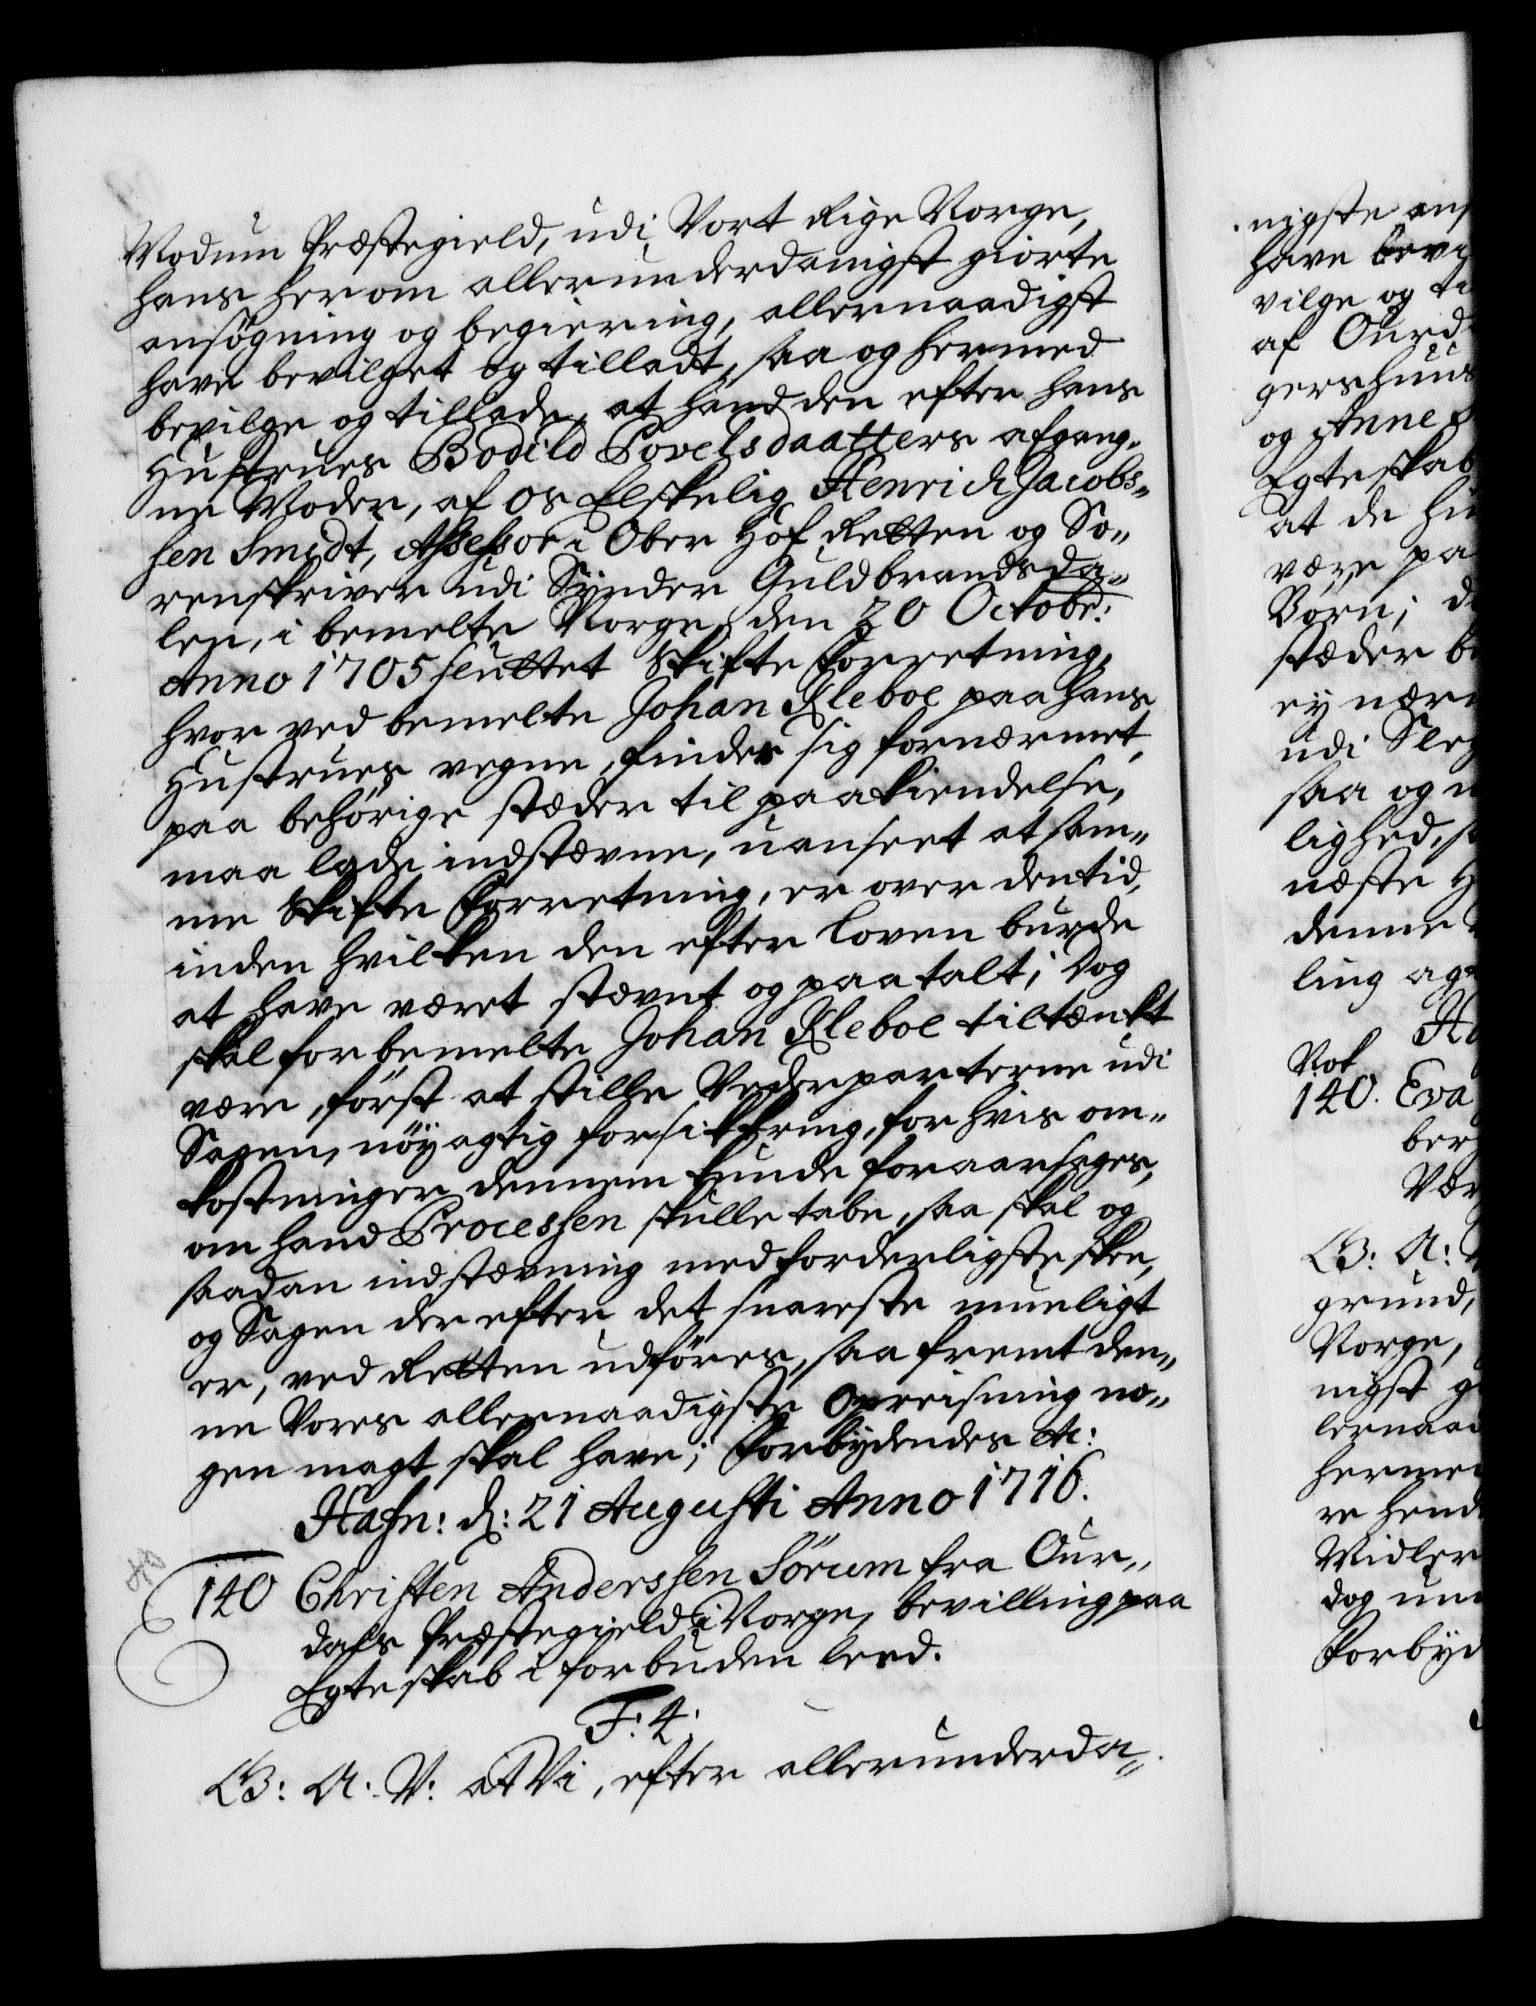 Modum Præstegield, udi Vort Rige Norge,
hans herom allerunderdanigst giorte
ansøgning og begiering, allernaadigst
have bevilget og tilladt, saa og hermed
bevilge og tillade, at hand den efter hans
Hustrues Bodild Povelsdaatters afgang„
ne Moder, af os Elskelig Henrich Jacobs„
sen Smidt, Assessor i Ober Hof Retten og So„
renskriver udi Synder Guldbrandsda„
len, i bemelte Norge, den 20 Octobr:
Anno 1705 sluttet Skifte Forretning,
hvor ved bemelte Johan Kleboe paa hans
Hustrues vegne, finder sig fornærmet,
paa behørige stæder til paakiendelse,
maa lade indstævne, uanseet at sam„
me Skifte Forretning, er over den tid,
inden hvilken den efter Loven burde
at have været stævnt og paatalt; Dog
skal forbemelte Johan Kleboe tiltænkt
være, først at stille Vederparterne udi
Sagen, nøyagtig forsikkring, for hvis om„
kostninger dennem kunde foraarsages,
om hand Processen skulle tabe, saa skal og
saadan indstævning med forderligste skee,
og Sagen der efter det snareste mueligt
er, ved Retten udføres, saa fremt den„
ne Vores allernaadigste Opreisning no„
gen magt skal have; Forbydendes etc:
Hafn: d: 21 Augusti Anno 1716.
140 Christen Anderssen Sørum fra Our„
dals Præstegield i Norge, bevilling paa
Egteskab i forbuden leed.
F: 4.
G: A: V: at Vi, efter allerunderda„
nigste ans
have bevi
vilge og ti
af Ourd
gershuus
og Anne
Egteskab
at de hu
være pa
Børn; d
stæder be
ey nærm
udi Sleg
saa og u
lighed, s
næste H
denne
ling ag
Ha
Not
140. Eva
ber
Vær
G: A:
grund,
Norge,
nigst g
lernaad
hermed
re hend
Midler
dog un
Forbyd